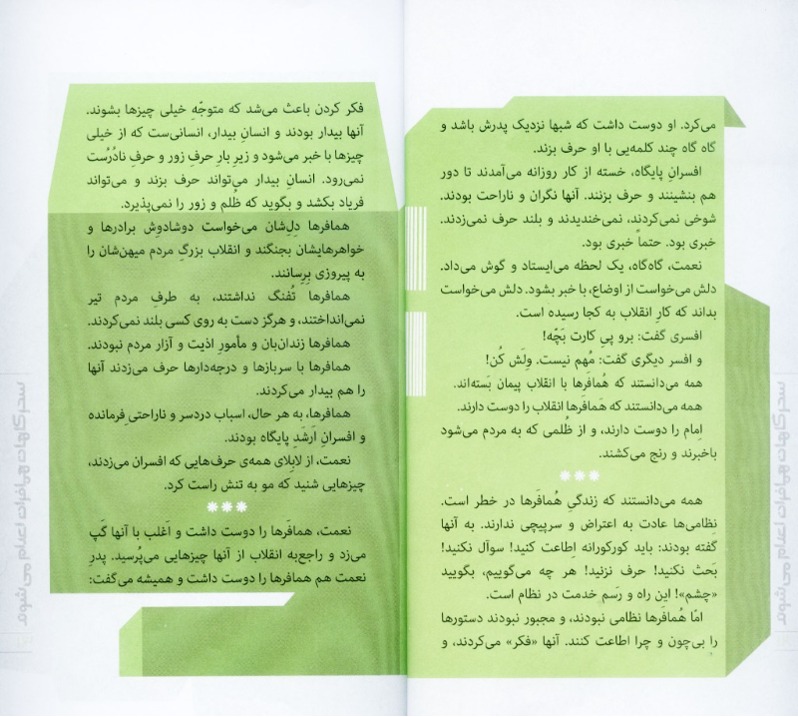 می‌کرد. او دوست داشت که شبها نزدیک پدرش باشد و
گاه گاه چند کلمه‌یی با او حرف بزند.
افسرانِ پایگاه، خسته از کار روزانه می‌آمدند تا دور
هم بنشینند و حرف بزنند. آنها نگران و ناراحت بودند.
شوخی نمی‌کردند، نمی‌خندیدند و بلند حرف نمی‌زدند.
خبری بود. حتماً خبری بود.
نعمت، گاه‌گاه، یک لحظه می‌ایستاد و گوش می‌داد.
دلش می‌خواست از اوضاع، با خبر بشود. دلش می‌خواست
بداند که کارِ انقلاب به کجا رسیده است.
افسری گفت: برو پیِ کارت بَچّه!
و افسر دیگری گفت: مُهم نیست. وِلَش کُن!
همه می‌دانستند که هُمافَرها با انقلاب پیمان بَسته‌اند.
همه می‌دانستند که هَمافَرها انقلاب را دوست دارند.
امام را دوست دارند، و از ظُلمی که به مردم می‌شود
باخبرند و رنج می‌کشند.
***
همه می‌دانستند که زندگیِ هُمافَرها در خطر است.
نظامی‌ها عادت به اعتراض و سرپیچی ندارند. به آنها
گفته بودند: باید کورکورانه اطاعت کنید! سوآل نکنید!
بَحث نکنید! حرف نزنید! هر چه می‌گوییم، بگویید
«چشم»! این راه و رَسم خدمت در نظام است.
امّا هُمافَرها نظامی نبودند، و مجبور نبودند دستورها
را بی‌چون و چرا اطاعت کنند. آنها «فکر» می‌کردند، و
فکر کردن باعث می‌شد که متوجّهِ خیلی چیزها بشوند.
آنها بیدار بودند و انسانِ بیدار، انسانی‌ست که از خیلی
چیزها با خبر می‌شود و زیرِ بارِ حرفِ زور و حرفِ نادُرُست
نمی‌رود. انسانِ بیدار می‌تواند حرف بزند و می‌تواند
فریاد بکشد و بگوید که ظُلم و زور را نمی‌پذیرد.
همافرها دلِ‌شان می‌خواست دوشادوشِ برادرها و
خواهرهایشان بجنگند و انقلاب بزرگِ مردم میهن‌شان را
به پیروزی بِرسانند.
همافرها تُفنگ نداشتند، به طرفِ مردم تیر
نمی‌انداختند، و هرگز دست به روی کسی بلند نمی‌کردند.
همافرها زندان‌بان و مأمورِ اذیت و آزار مردم نبودند.
همافرها با سربازها و درجه‌دارها حرف می‌زدند آنها
را هم بیدار می‌کردند.
همافرها، به هر حال، اسباب دردسر و ناراحتی فرمانده
و افسرانِ اَرشَدِ پایگاه بودند.
نعمت، از لابلای همه‌ی حرف‌هایی که افسران می‌زدند،
چیزهایی شنید که مو به تنش راست کرد.
***
نعمت، همافَرها را دوست داشت و اَغلب با آنها گَپ
می‌زد و راجع‌به انقلاب از آنها چیزهایی می‌پُرسید. پدرِ
نعمت هم همافرها را دوست داشت و همیشه می‌گفت: